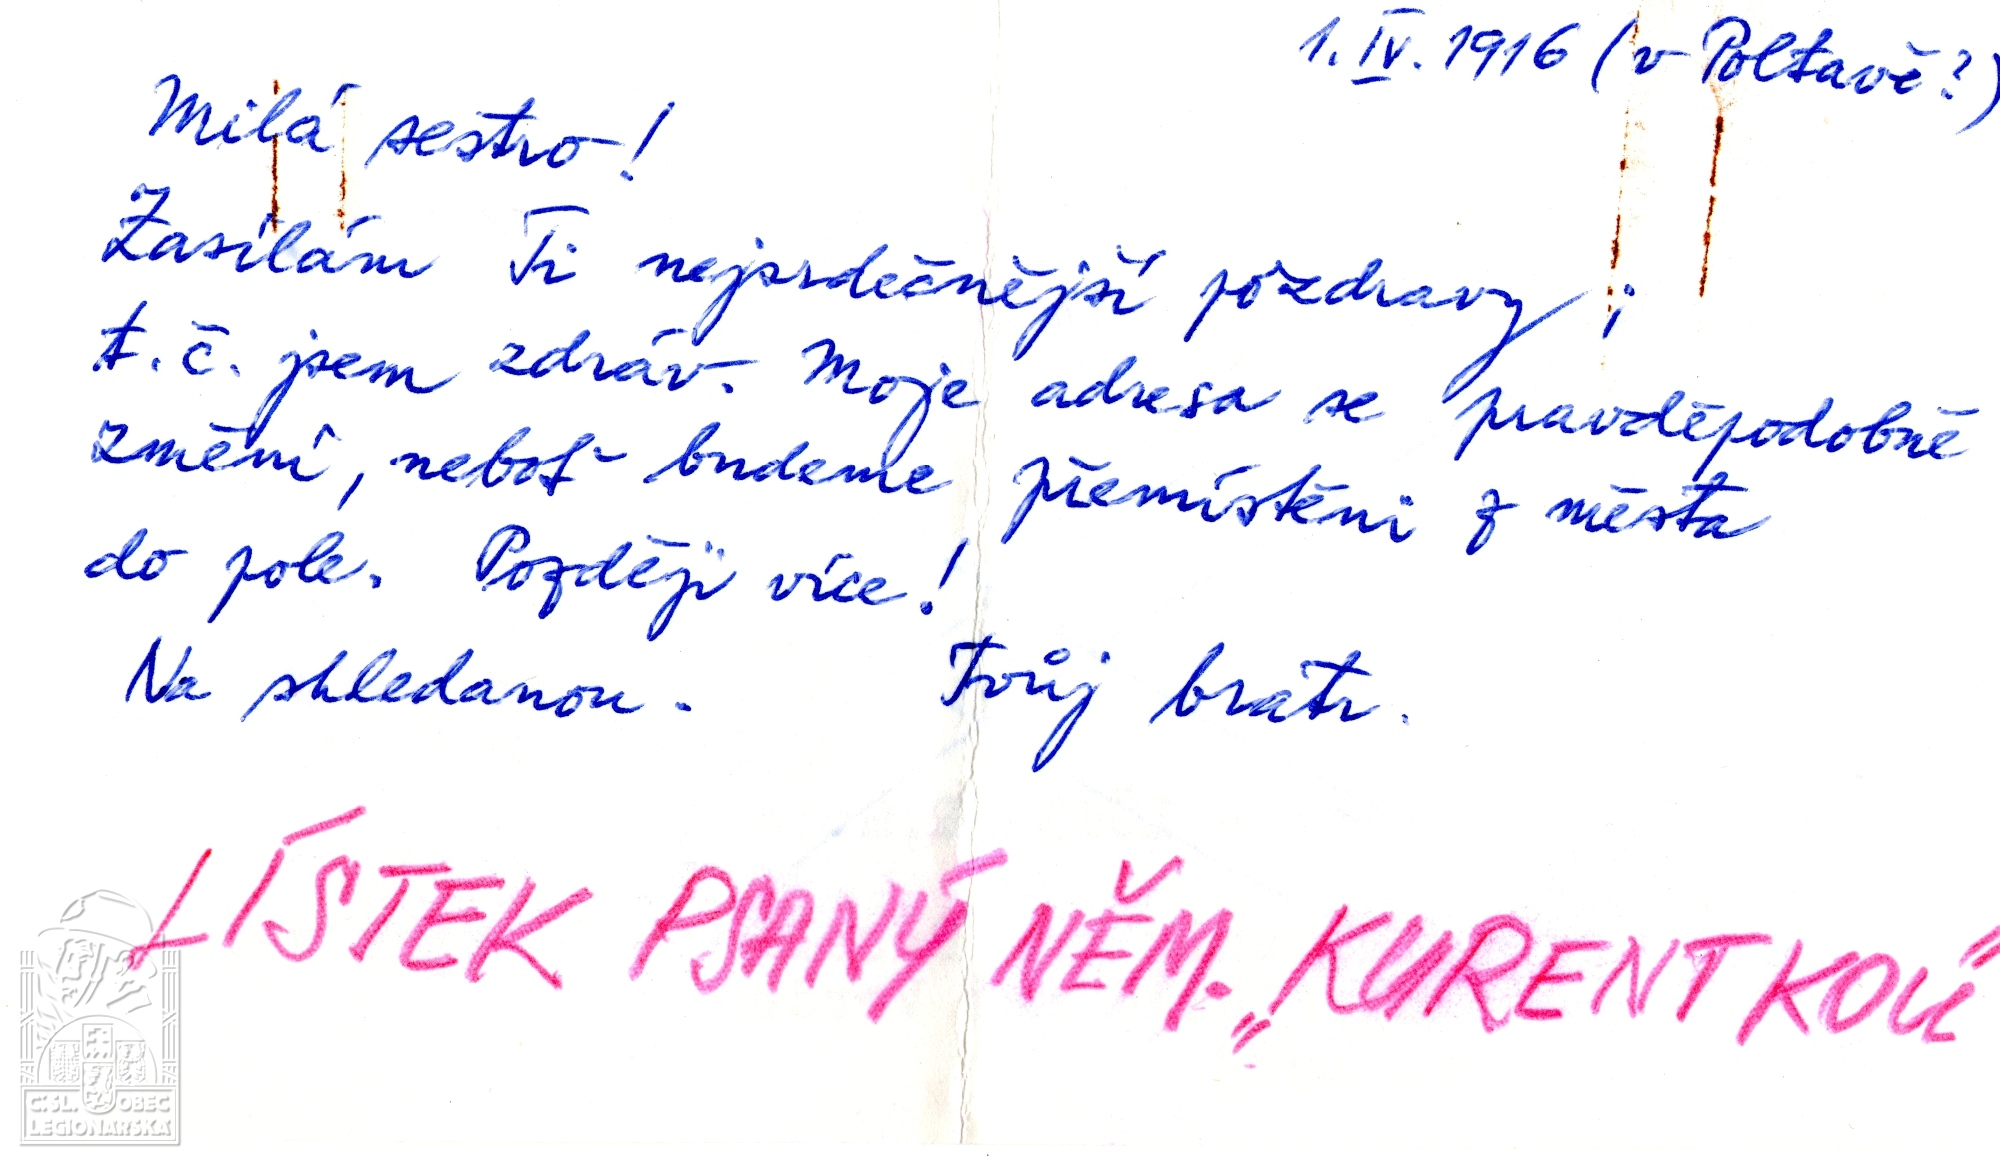 1. IV. 1916 (v Poltavě?)
Milá sestro!
Zasílám Ti nejsrdečnější pozdravy;
t.č. jsem zdráv. Moje adresa se pravděpodobně
změní, neboť budeme přemístěni z města
do pole. Později více!
Na shledanou. Tvůj bratr.
LÍSTEK PSANÝ NĚM. „KURENTKOU“
Č. SL. OBEC
LEGIONÁŘSKÁ